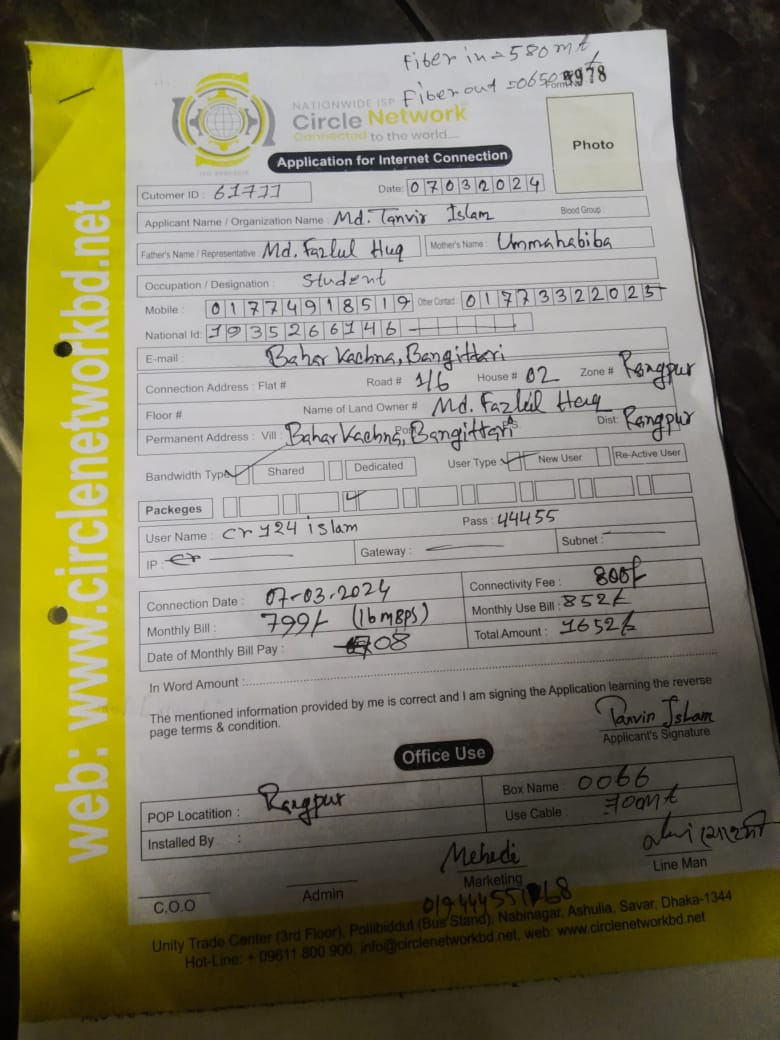 Fiber in = 580 mt
Fiber out = 0650
978
NATIONWIDE ISP
Circle Network
Connected to the world....
Application for Internet Connection
Photo
Cutomer ID : 61711
Date: 07032024
Applicant Name / Organization Name : Md. Tanvir Islam Blood Group :
Father's Name / Representative Md. Fazlul Huq Mother's Name : Ummahabiba
Occupation / Designation : Student
Mobile : 01774918519 Other Contact : 01773322025
National Id: 1935266146
E-mail :
Bahar Kachna, Bangittari
Connection Address : Flat # Road # 1/6 House # 02 Zone # Rangpur
Floor # Name of Land Owner # Md. Fazlul Huq
Permanent Address : Vill : Bahar Kachna, Bangittari Dist: Rangpur
Bandwidth Type Shared Dedicated User Type New User Re-Active User
Packeges
User Name : cr724 islam Pass : 44455
IP : cr Gateway : Subnet :
Connection Date : 07-03-2024 Connectivity Fee : 800/-
Monthly Bill : 799/- (16 mBPS) Monthly Use Bill : 852/-
Date of Monthly Bill Pay : 08 Total Amount : 1652/-
In Word Amount :
The mentioned information provided by me is correct and I am signing the Application learning the reverse
page terms & condition.
Tanvir Islam
Applicant's Signature
Office Use
POP Locatition : Rangpur Box Name : 0066
Installed By : Use Cable : 70mt
Mehedi
C.O.O Admin Marketing Line Man
Unity Trade Center (3rd Floor), Pollibiddut (Bus Stand), Nabinagar, Ashulia, Savar, Dhaka-1344
Hot-Line: + 09611 800 900, info@circlenetworkbd.net, web: www.circlenetworkbd.net
web: www.circlenetworkbd.net